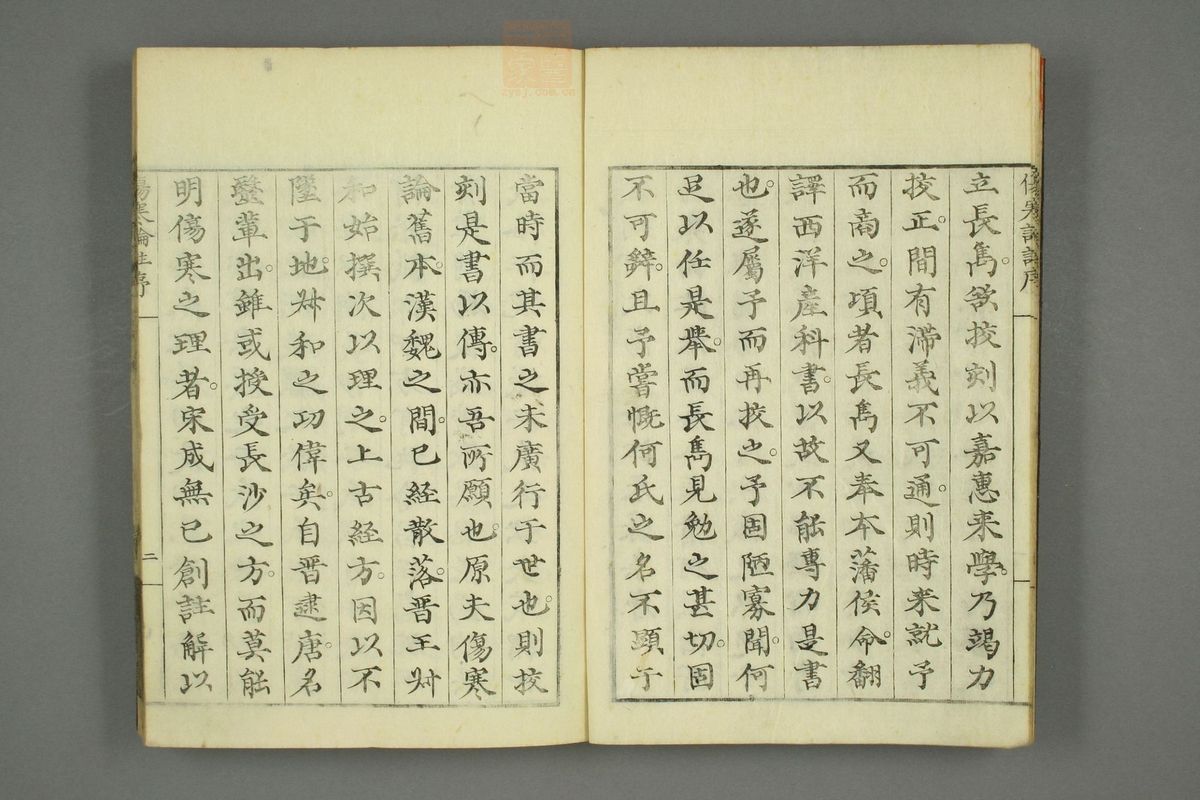 立長雋。欲挍刻以嘉惠来學。乃竭力
挍正。間有滯義不可通。則時来就予
而商之。項者長雋又奉本藩侯命。翻
譯西洋産科書。以故不能專力是書
也。遂屬予而再挍之。予固陋寡聞。何
足以任是舉。而長雋見勉之甚切。固
不可辭。且予嘗慨何氏之名不顯于
當時而其書之未廣行于世也。則挍
刻是書以傳。亦吾所願也。原夫傷寒
論舊本。漢魏之間。已経散落。晋王叔
和始撰次以理之。上古経方。因以不
墜于地。叔和之功偉矣。自晋逮唐。名
毉輩出。雖或授受長沙之方。而莫能
明傷寒之理者。宋成無已創註解以
傷寒論註序
二
zysj.com.cn